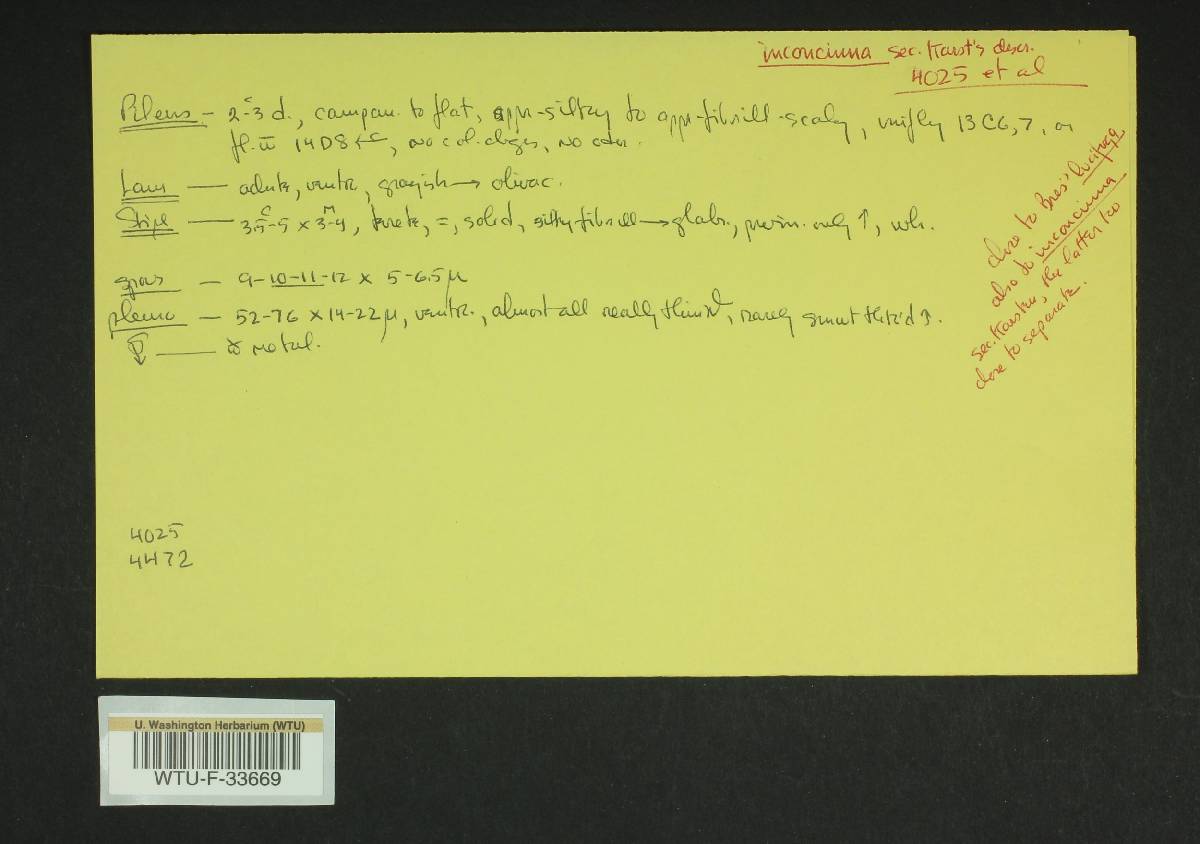 inconcinna sec. Karst's descr.
4025 et al
Pileus – 2-3 c d., campan. to flat, appr-silky to appr-fibrill-scaly, unifly 13 C6,7, or
14 D8, no col. chges, no odor.
Lam — adnate, ventr., grayish → olivac.
Stipe — 3.5-5 c x 3-4 M, terete, =, solid, silky fibrill → glabr., pruin. only ↑, wh.
spores – 9-10-11-12 x 5-6.5 µ
pleuro – 52-76 x 14-22 µ, ventr., almost all really thin w, rarely smwt thk'd ↑.
close to Bres's lucifuga
also to inconcinna
sec. Karsten, the latter too
close to separate.
4025
4472
U. Washington Herbarium (WTU)
WTU-F-33669